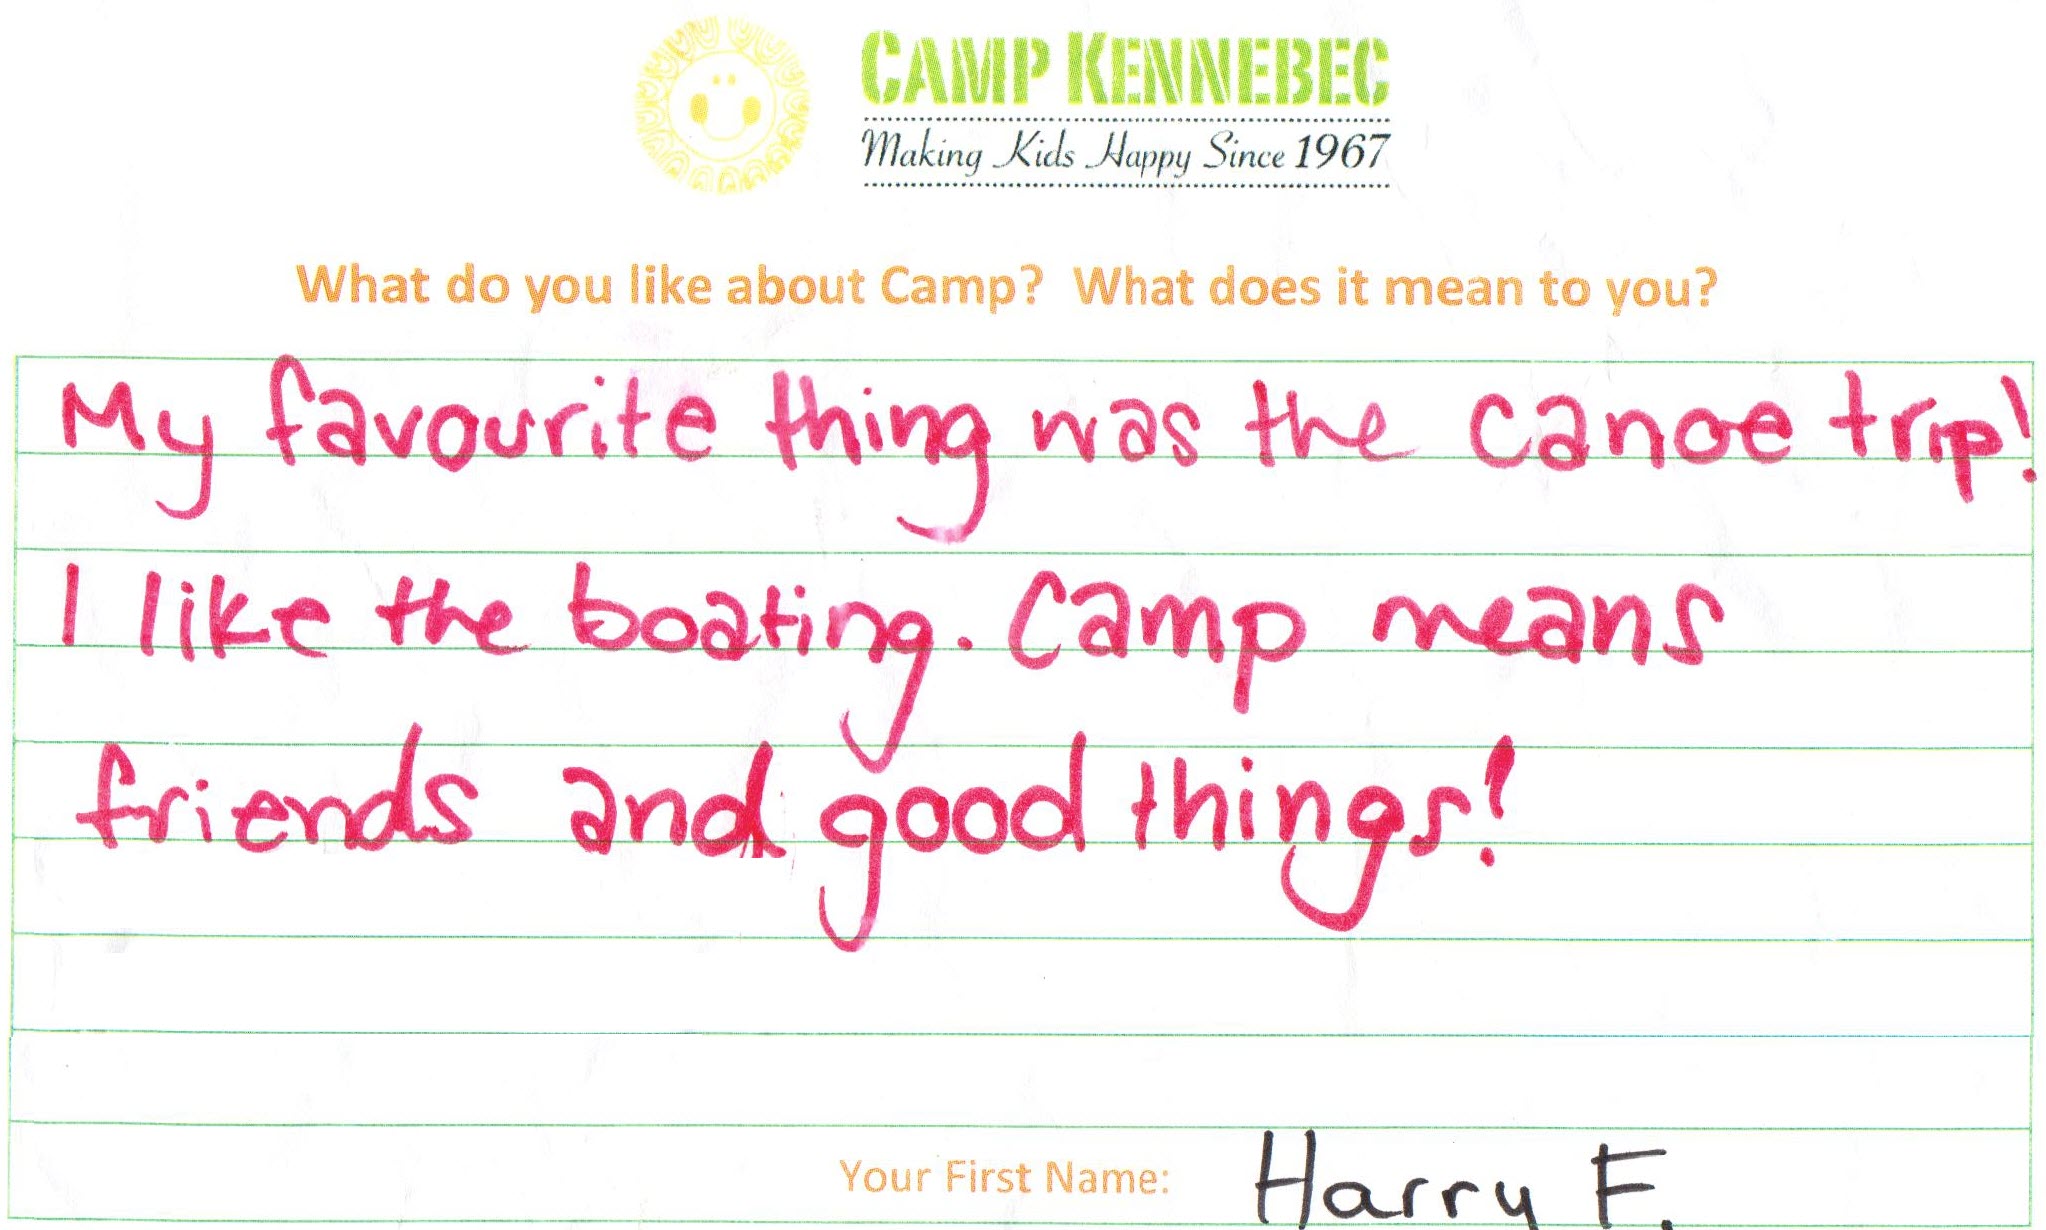 CAMP KENNEBEC
Making Kids Happy Since 1967
What do you like about Camp? What does it mean to you?
My favourite thing was the canoe trip!
I like the boating. Camp means
friends and good things!
Your First Name: Harry F.